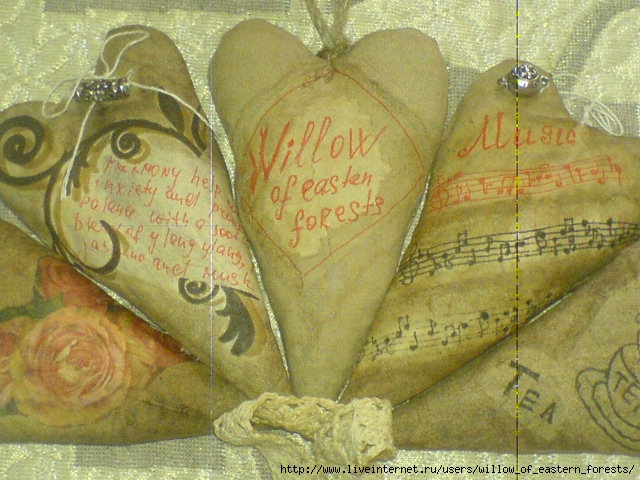 HARMONY help
anxiety and
potence with a
blend of ylang ylang,
and musk
Willow
of easten
forests
Music
TEA
http://www.liveinternet.ru/users/willow_of_eastern_forests/